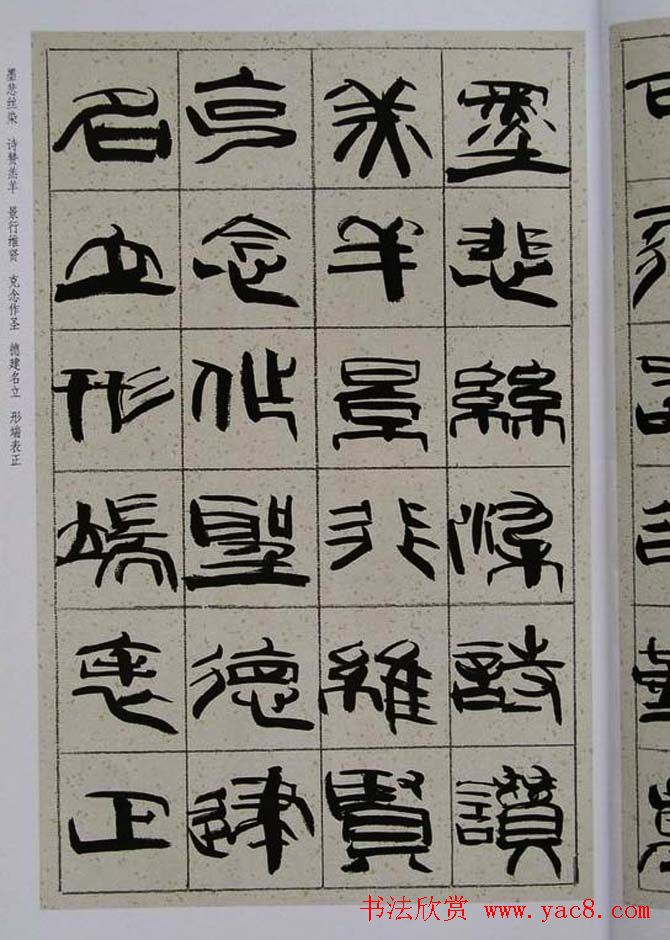 墨悲絲染詩讚
羔羊景行維賢
克念作聖德建
名立形端表正
墨悲丝染 诗赞羔羊 景行维贤 克念作圣 德建名立 形端表正
书法欣赏 www.yac8.com